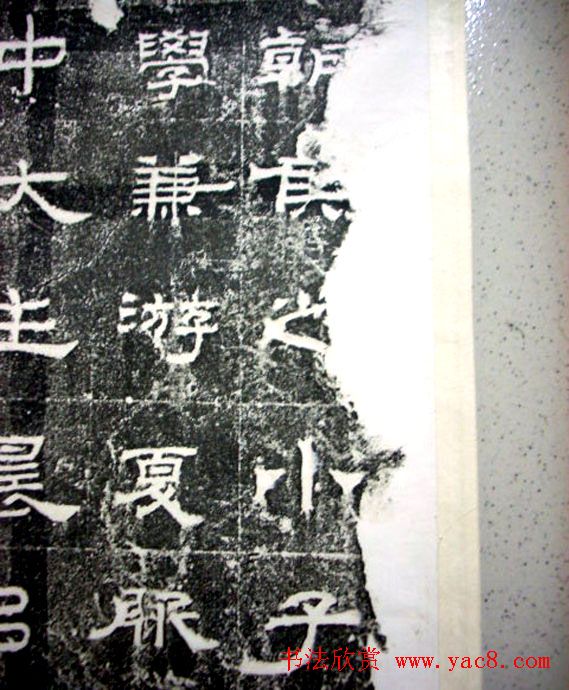 朝侯之小子
學兼游夏服
中大主晨以
书法欣赏 www.yac8.com